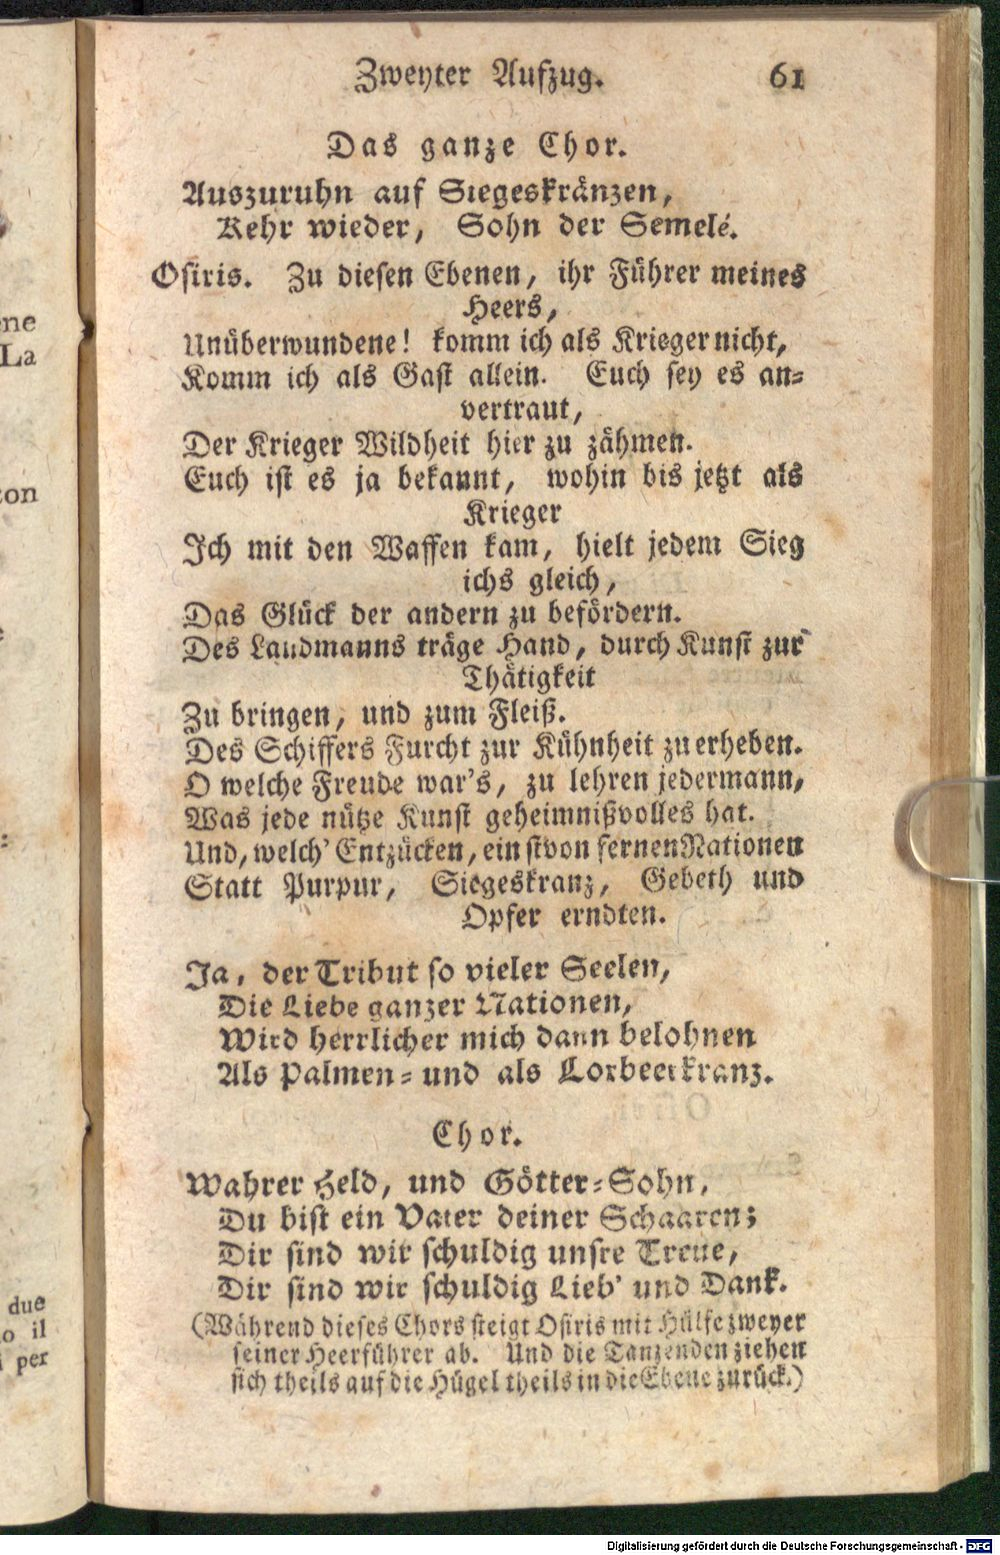 Zweyter Aufzug. 61
Das ganze Chor.
Auszuruhn auf Siegeskränzen,
Kehr wieder, Sohn der Semelé.
Osiris. Zu diesen Ebenen, ihr Führer meines
Heers,
Unüberwundene! komm ich als Krieger nicht,
Komm ich als Gast allein. Euch sey es an-
vertraut,
Der Krieger Wildheit hier zu zähmen.
Euch ist es ja bekannt, wohin bis jetzt als
Krieger
Ich mit den Waffen kam, hielt jedem Sieg
ichs gleich,
Das Glück der andern zu befördern.
Des Landmanns träge Hand, durch Kunst zur
Thätigkeit
Zu bringen, und zum Fleiß.
Des Schiffers Furcht zur Kühnheit zu erheben.
O welche Freude war's, zu lehren jedermann,
Was jede nütze Kunst geheimnißvolles hat.
Und, welch' Entzücken, einst von fernen Nationen
Statt Purpur, Siegeskranz, Gebeth und
Opfer erndten.
Ja, der Tribut so vieler Seelen,
Die Liebe ganzer Nationen,
Wird herrlicher mich dann belohnen
Als Palmen- und als Lorbeerkranz.
Chor.
Wahrer Held, und Götter-Sohn,
Du bist ein Vater deiner Schaaren;
Dir sind wir schuldig unsre Treue,
Dir sind wir schuldig Lieb' und Dank.
(Während dieses Chors steigt Osiris mit Hülfe zweyer
seiner Heerführer ab. Und die Tanzenden ziehen
sich theils auf die Hügel theils in die Ebene zurück.)
ne
La
con
due
o il
per
Digitalisierung gefördert durch die Deutsche Forschungsgemeinschaft - DFG